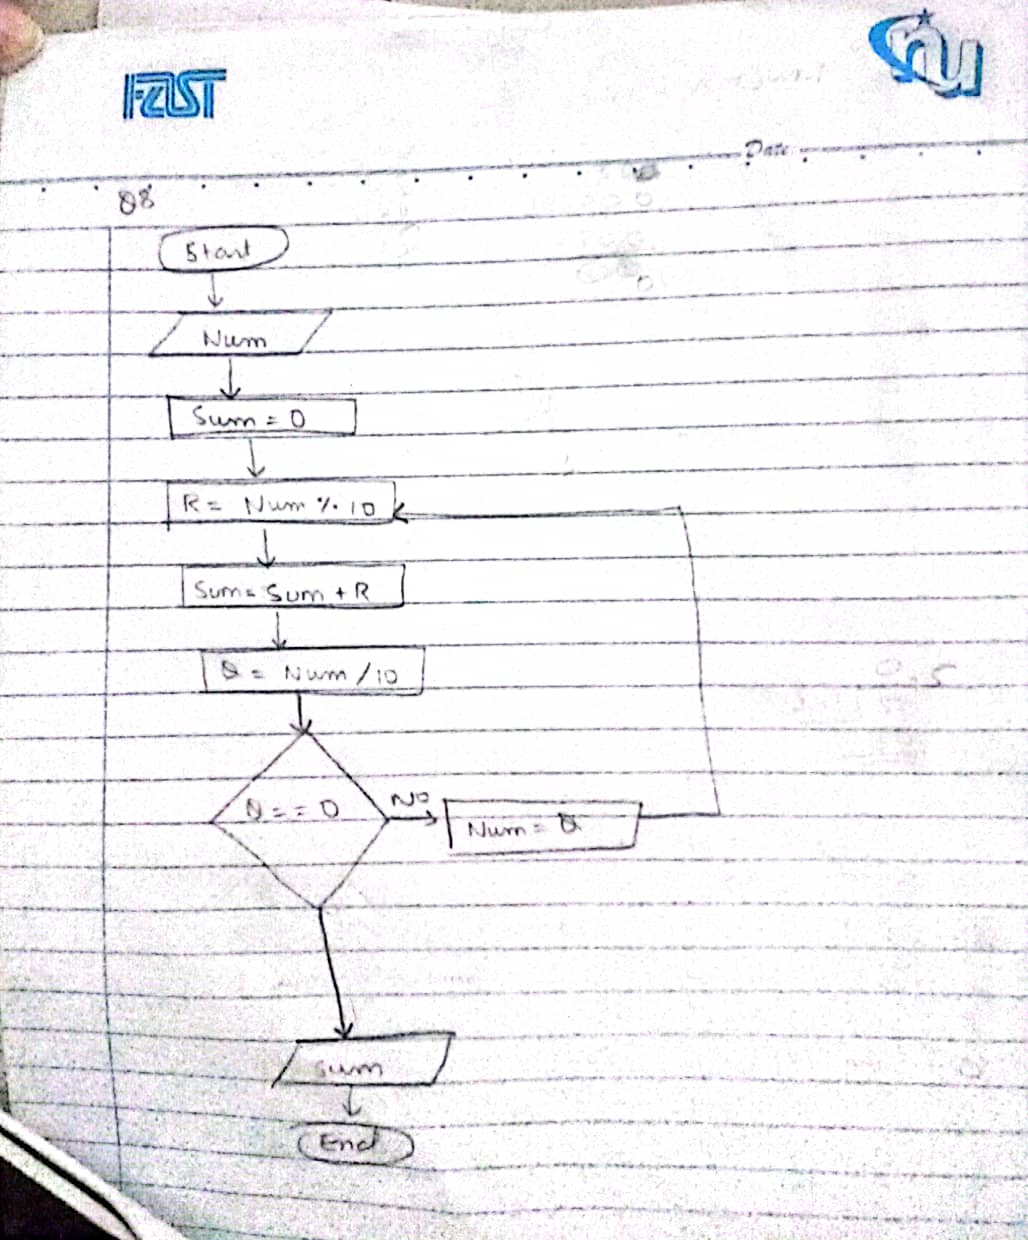 FAST
nu
Date:
Q8
Start
Num
Sum = 0
R = Num % 10
Sum = Sum + R
Q = Num / 10
Q == 0
No
Num = Q
Sum
End